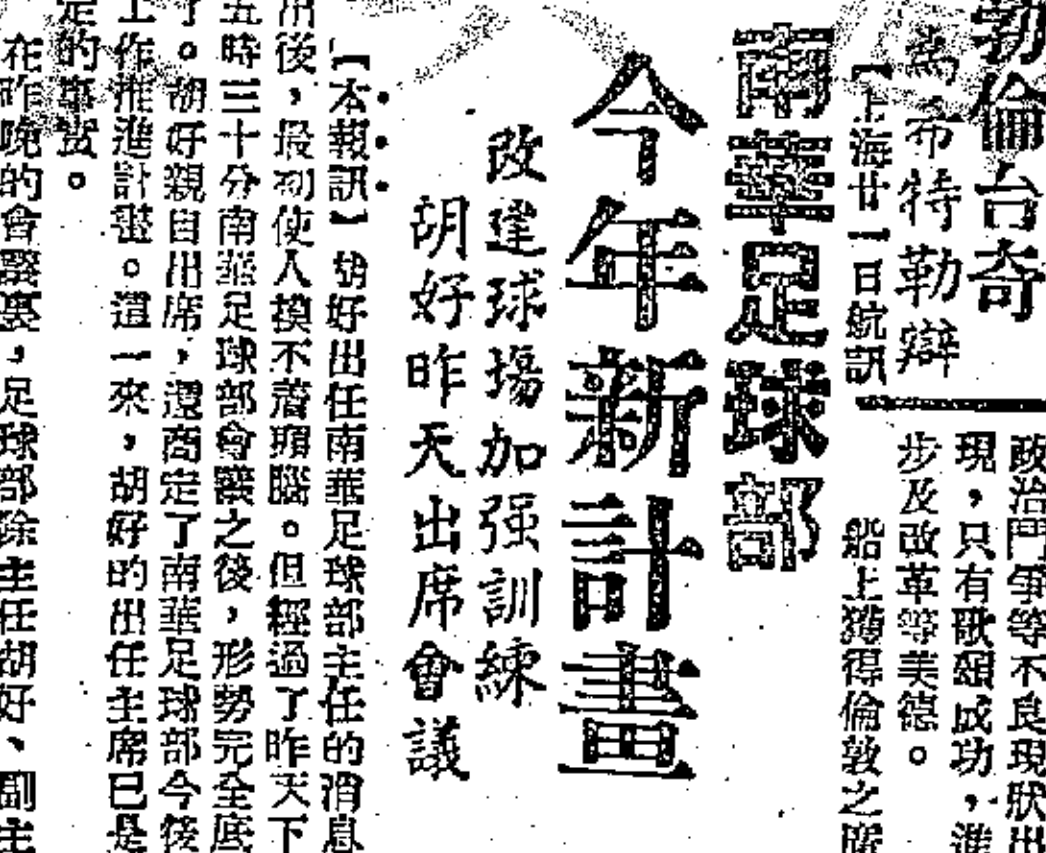 勃倫台奇
為希特勒辯
【上海廿一日航訊
政治鬥爭等不良現狀出
現,只有歌頌成功,進
步及改革等美德。
船上獲得倫敦之
南華足球部
今年新計畫
改建球場加强訓練
胡好昨天出席會議
【本報訊】胡好出任南華足球部主任的消息
出後,最初使人摸不着頭腦。但經過了昨天下
五時三十分南華足球部會議之後,形勢完全底
了。胡好親自出席,還商定了南華足球部今後
工作推進計劃。這一來,胡好的出任主席已是
定的事實。
在昨晚的會議裏,足球部除主任胡好、副主